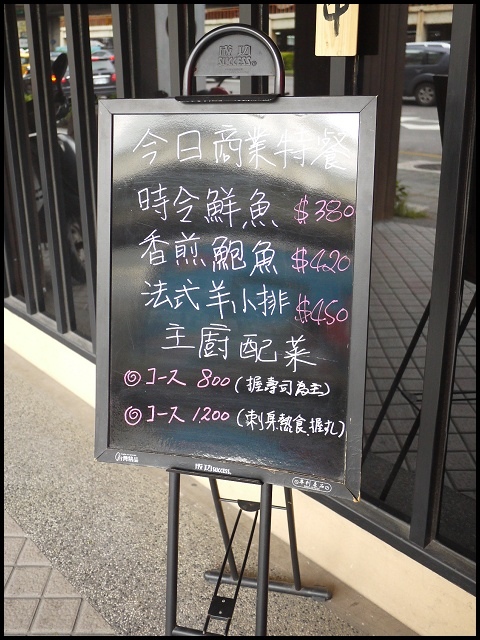 中
成功
SUCCESS®
今日商業特餐
時令鮮魚 $380
香煎鮑魚 $420
法式羊小排 $450
主廚配菜
◎コース 800 (握壽司為主)
◎コース 1,200 (刺身熱食握丸)
成功 SUCCESS.